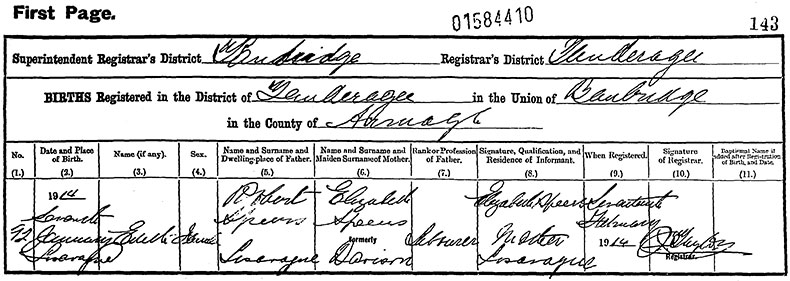 First Page.
01584410
143
Superintendent Registrar's District Banbridge Registrar's District Tanderagee
BIRTHS Registered in the District of Tanderagee in the Union of Banbridge
in the County of Armagh
No. Date and Place of Birth. Name (if any). Sex. Name and Surname and Dwelling-place of Father. Name and Surname and Maiden Surname of Mother. Rank or Profession of Father. Signature, Qualification, and Residence of Informant. When Registered. Signature of Registrar. Baptismal Name if added after Registration of Birth, and Date.
(1.) (2.) (3.) (4.) (5.) (6.) (7.) (8.) (9.) (10.) (11.)
1914 Robert Elizabeth Elizabeth Speers Seventeenth
Seventh Speers Speers February
92 January Edith Female formerly Labourer Mother 1914
Registrar.
Lisavague Lisavague Davison Lisavague